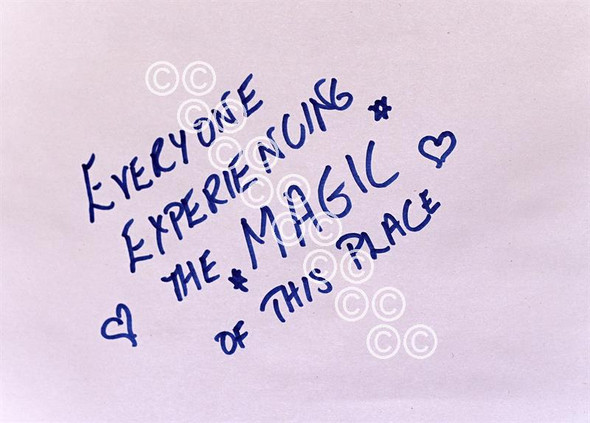 EVERYONE
EXPERIENCING
THE MAGIC
OF THIS PLACE